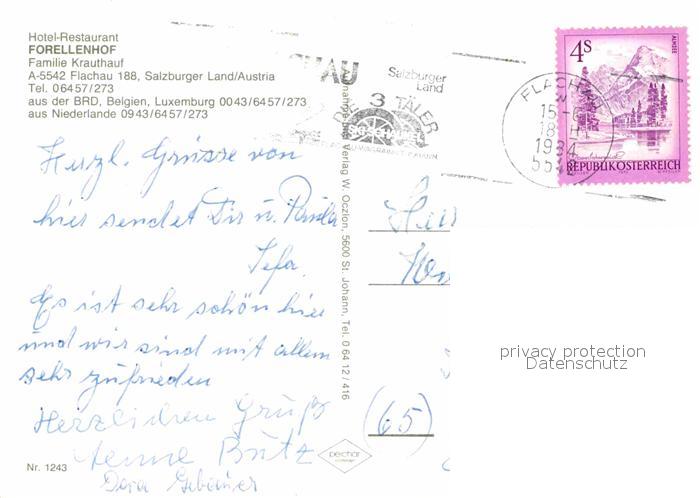 Hotel-Restaurant
FORELLENHOF
Familie Krauthauf
A-5542 Flachau 188, Salzburger Land/Austria
Tel. 06457/273
aus der BRD, Belgien, Luxemburg 0043/6457/273
aus Niederlande 0943/6457/273
HAU
Salzburger
Land
3
TÄLER
FLACH
15.-
18
1984
55
4S
ALMSEE
REPUBLIK ÖSTERREICH
Herzl. Grüsse von
hier sendet Dir u.
Sefa.
Es ist sehr schön hier
und wir sind mit allem
sehr zufrieden
Herzlichen Gruß
Butz
Dora Gebauer
Nr. 1243
Aufnahme und Verlag W. Oczlon, 5600 St. Johann, Tel. 0 64 12 / 416
(65)
privacy protection
Datenschutz